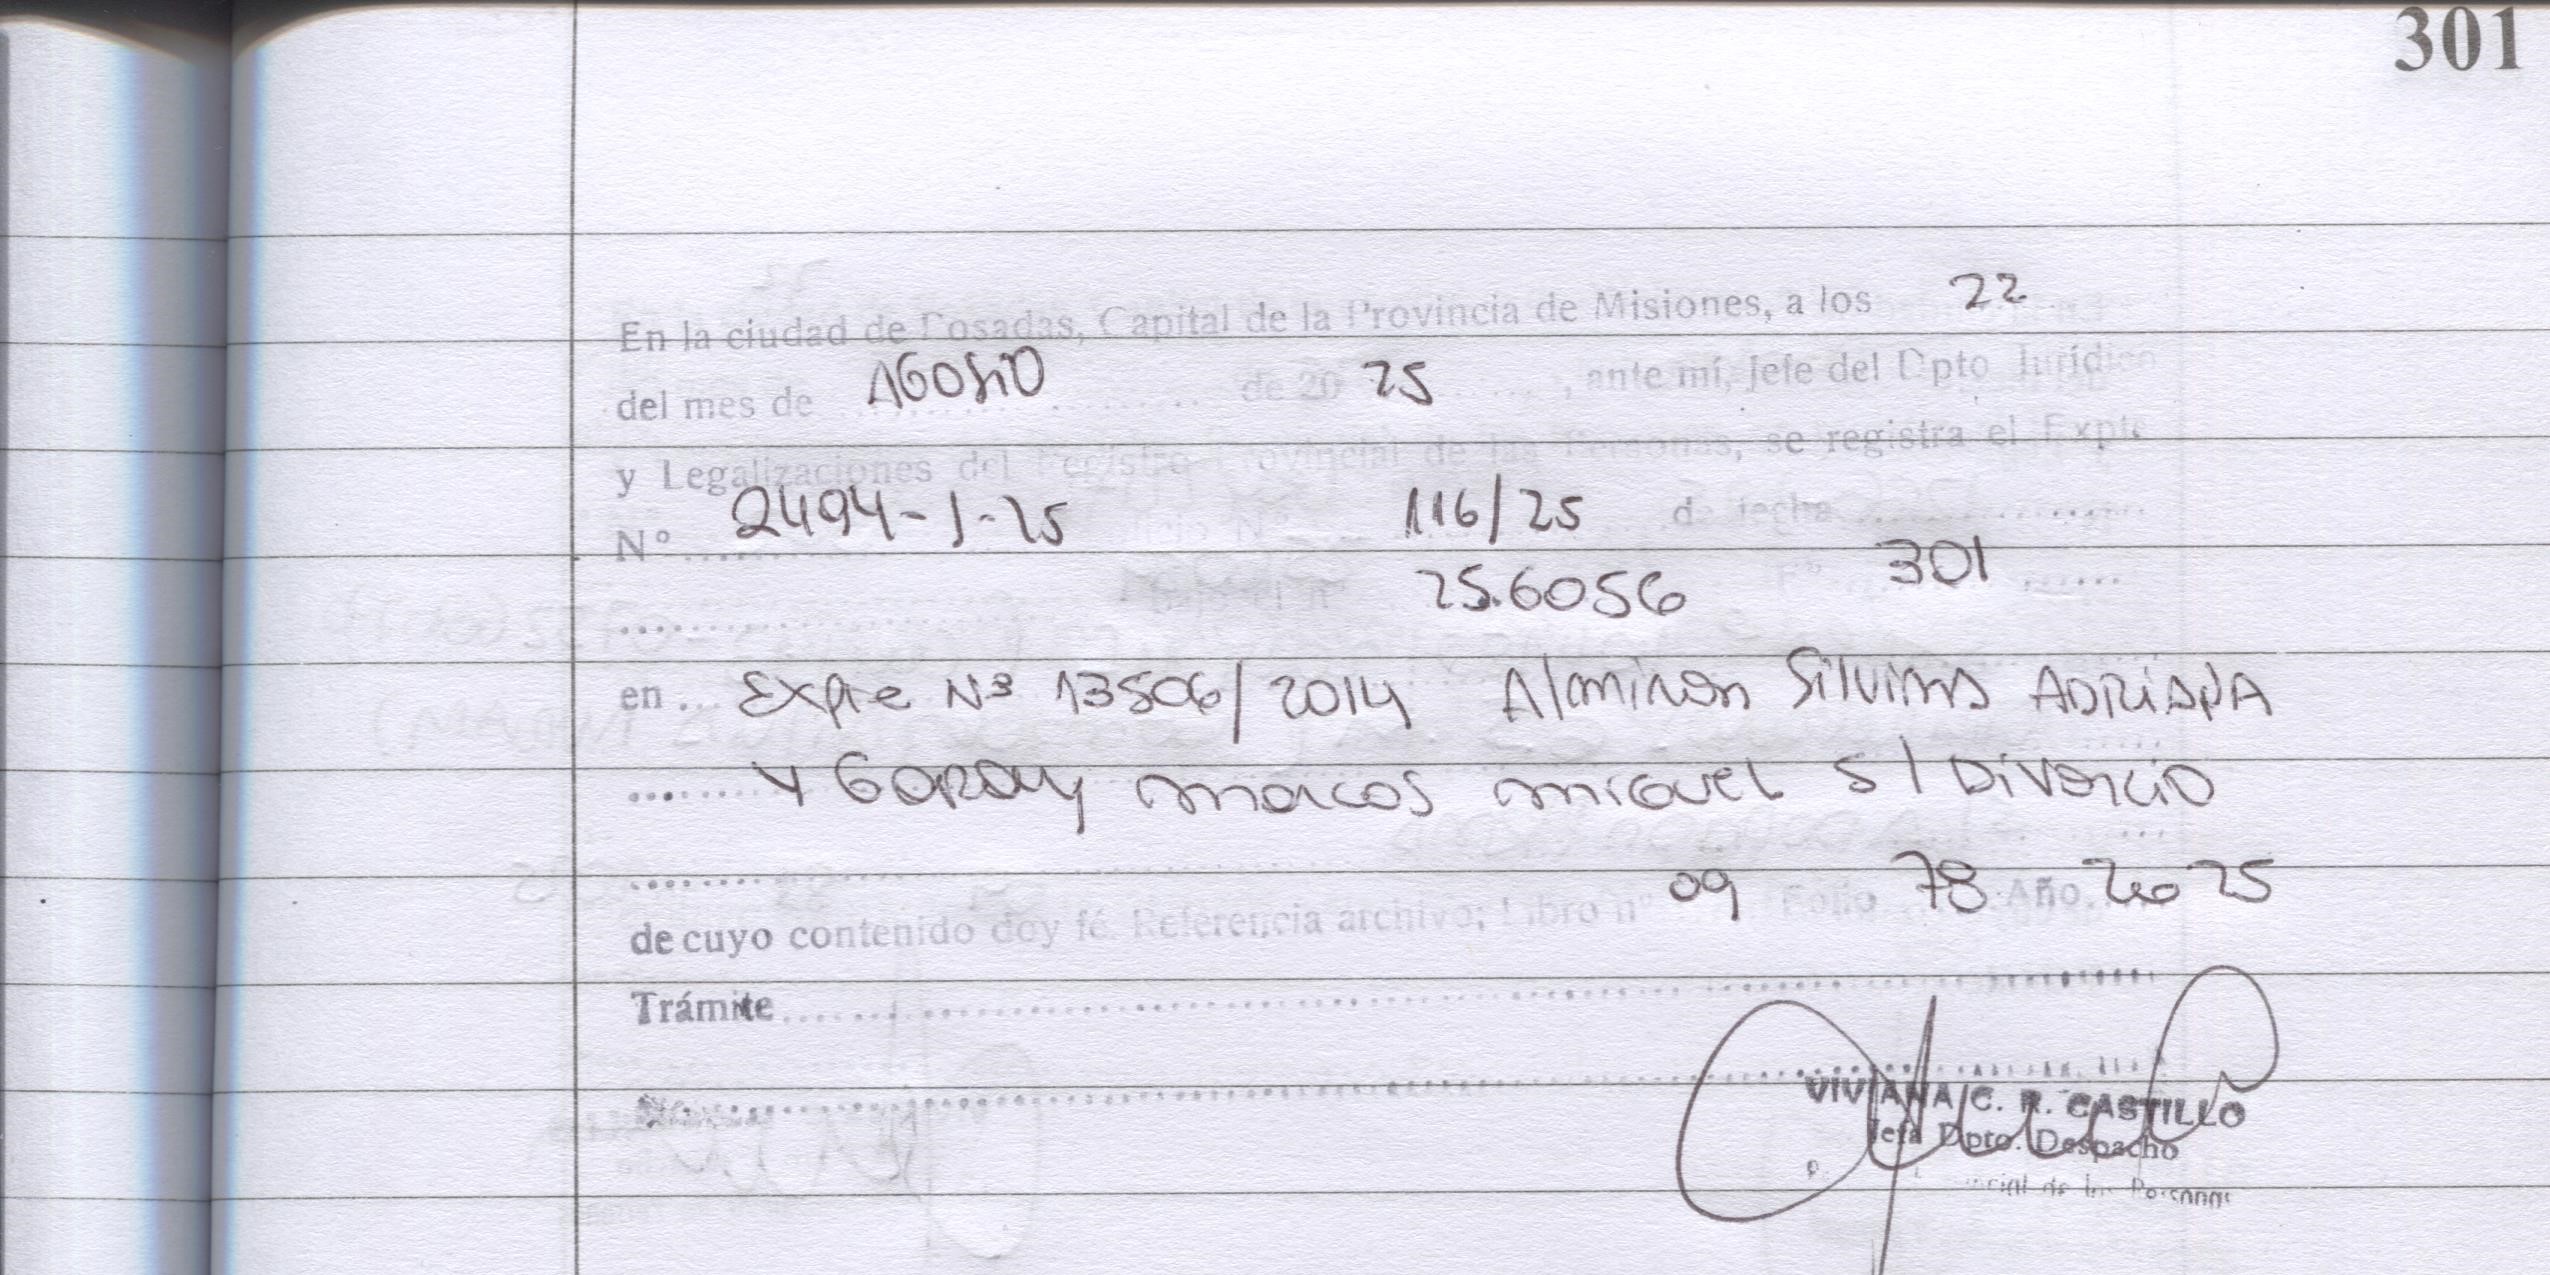 301
En la ciudad de Posadas, Capital de la Provincia de Misiones, a los 22
del mes de AGOSTO de 20 25, ante mí, Jefe del Dpto Jurídico
y Legalizaciones del Registro Provincial de las Personas, se registra el Expte
Nº 2494-1-25 116/25 de fecha
25.6056 Fº 301
en Expte Nº 13506/2014 Almiron Silvina ADRIANA
Y GARAY marcos miguel S/ Divorcio
de cuyo contenido doy fé. Referencia archivo; Libro nº 09 Folio 78 Año 2025
Trámite
VIVIANA C. R. CASTILLO
Jefa Dpto. Despacho
de las Personas